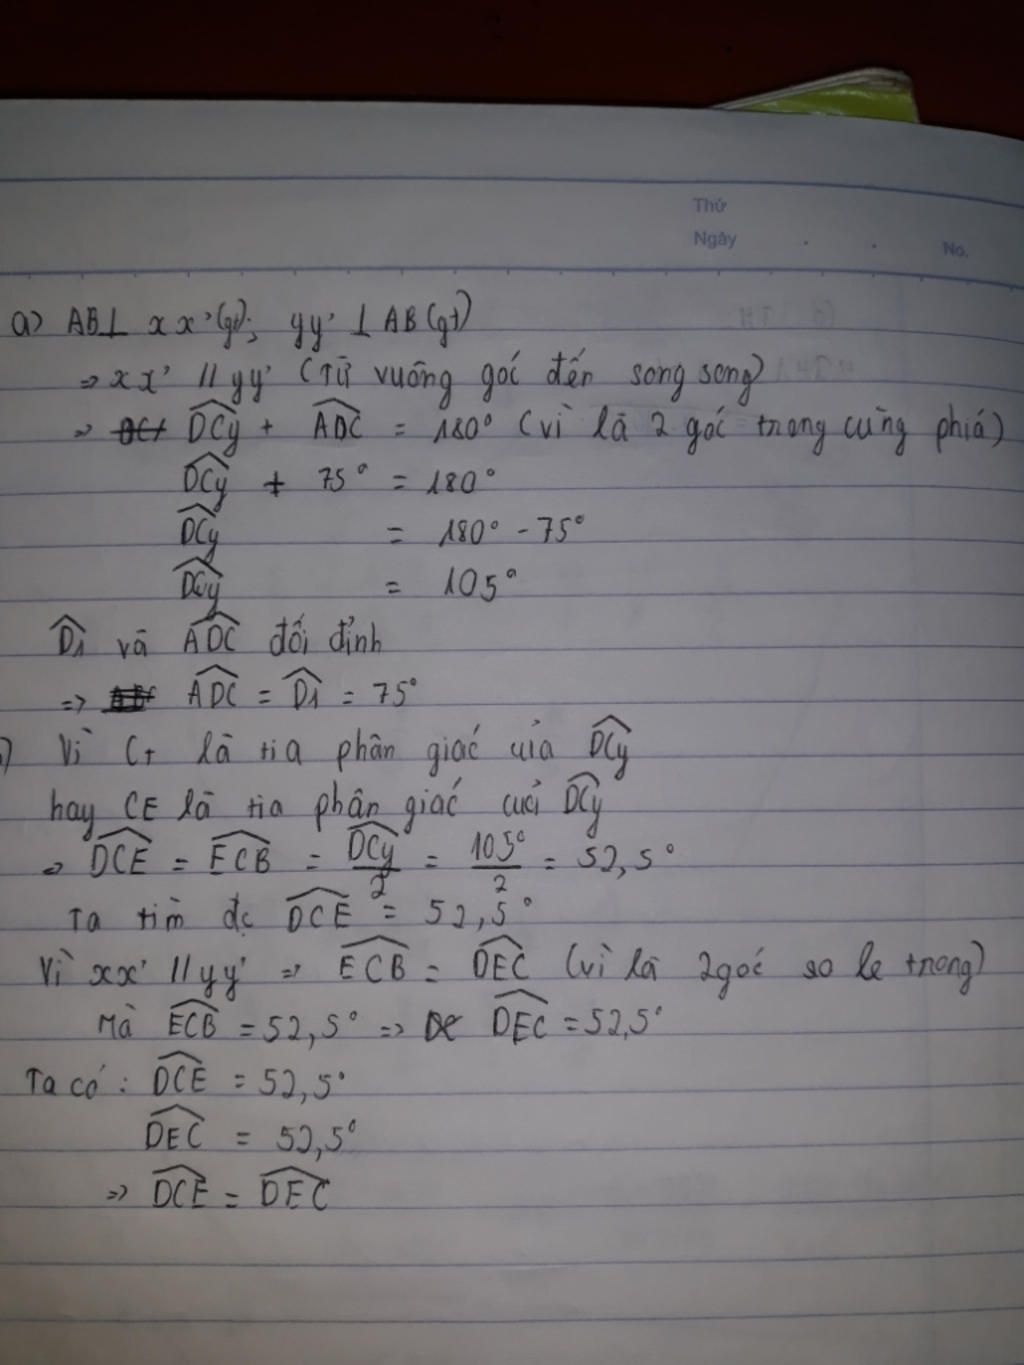 Thứ
Ngày . . No.
a) AB⊥ xx'(gt); yy' ⊥ AB(gt)
=> xx' // yy' (Từ vuông góc đến song song)
=> DCy + ADC = 180° (vì là 2 góc trong cùng phía)
DCy + 75° = 180°
DCy = 180° - 75°
DCy = 105°
D1 và ADC đối đỉnh
=> ADC = D1 = 75°
) Vì Ct là tia phân giác của DCy
hay CE là tia phân giác của DCy
=> DCE = ECB = DCy/2 = 105°/2 = 52,5°
Ta tìm đc DCE = 52,5°
Vì xx' // yy' => ECB = DEC (vì là 2 góc so le trong)
Mà ECB = 52,5° => DEC = 52,5°
Ta có: DCE = 52,5°
DEC = 52,5°
=> DCE = DEC